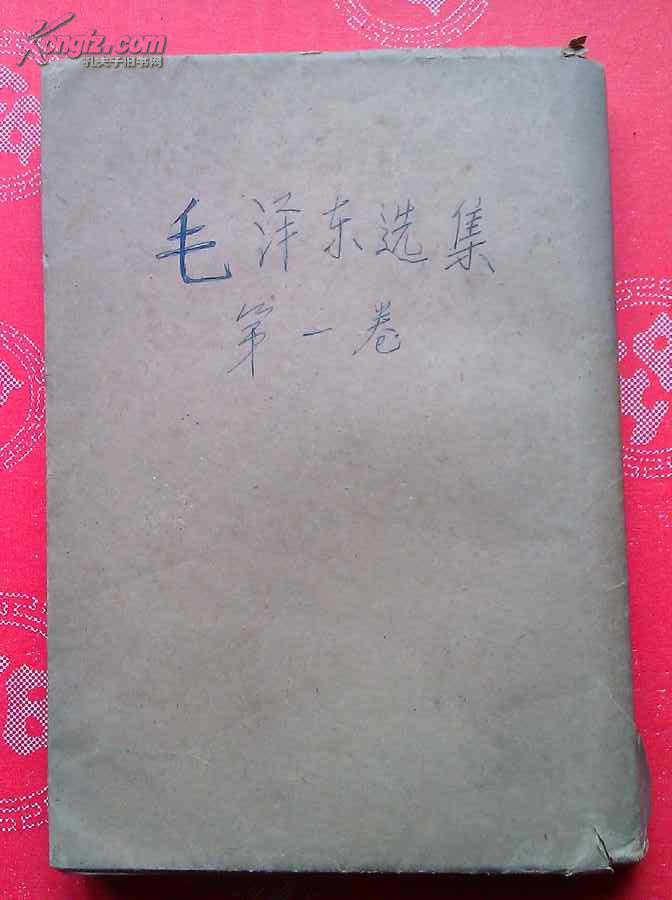 Kongfz.com
孔夫子旧书网
毛泽东选集
第一卷